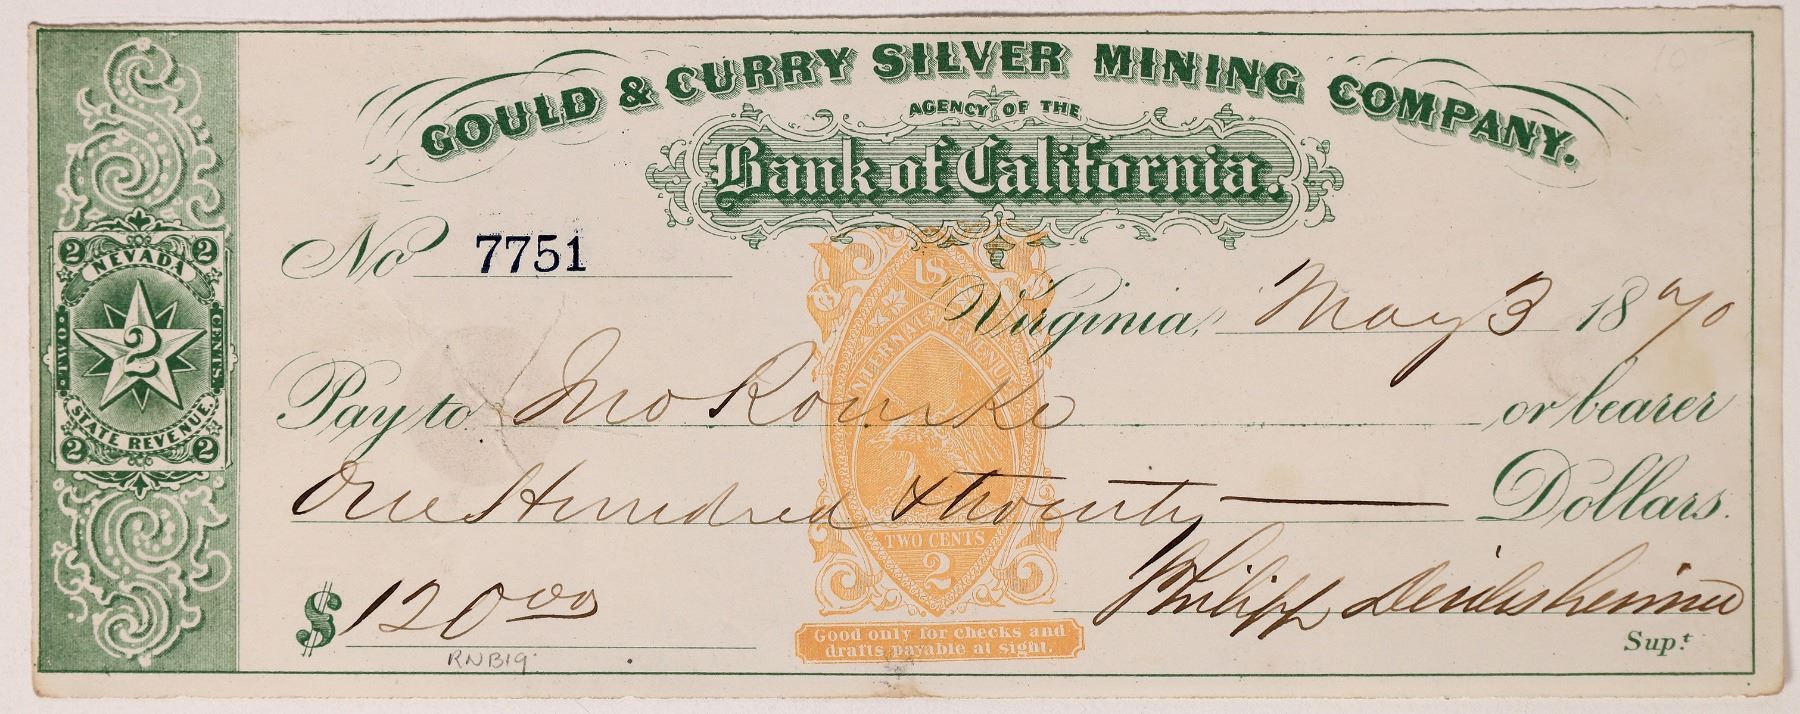 GOULD & CURRY SILVER MINING COMPANY.
AGENCY OF THE
Bank of California.
No 7751
Virginia, May 3 1870
Pay to Jno Rourke or bearer
One Hundred & twenty Dollars.
$ 120.00
Philipp Deidesheimer
Supt
RNB19
2 2
NEVADA
TWO 2 CENTS
STATE REVENUE.
2 2
US
INTERNAL REVENUE
TWO CENTS
2
Good only for checks and
drafts payable at sight.
10